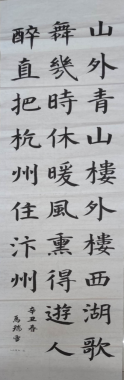 山外青山樓外樓西湖歌
舞幾時休暖風熏得遊人
醉直把杭州住汴州
辛丑春